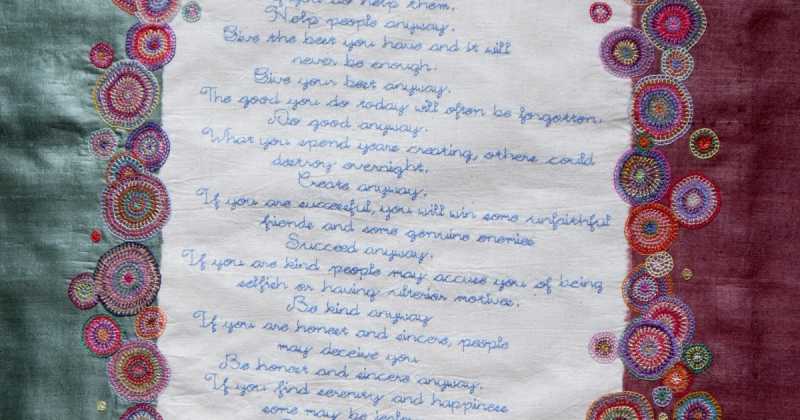 If you do help them.
Help people anyway.
Give the best you have and it will
never be enough.
Give your best anyway.
The good you do today will often be forgotten.
Do good anyway.
What you spend years creating, others could
destroy overnight.
Create anyway.
If you are successful, you will win some unfaithful
friends and some genuine enemies
Succeed anyway.
If you are kind people may accuse you of being
selfish or having ulterior motives.
Be kind anyway
If you are honest and sincere, people
may deceive you
Be honest and sincere anyway.
If you find serenity and happiness
some may be